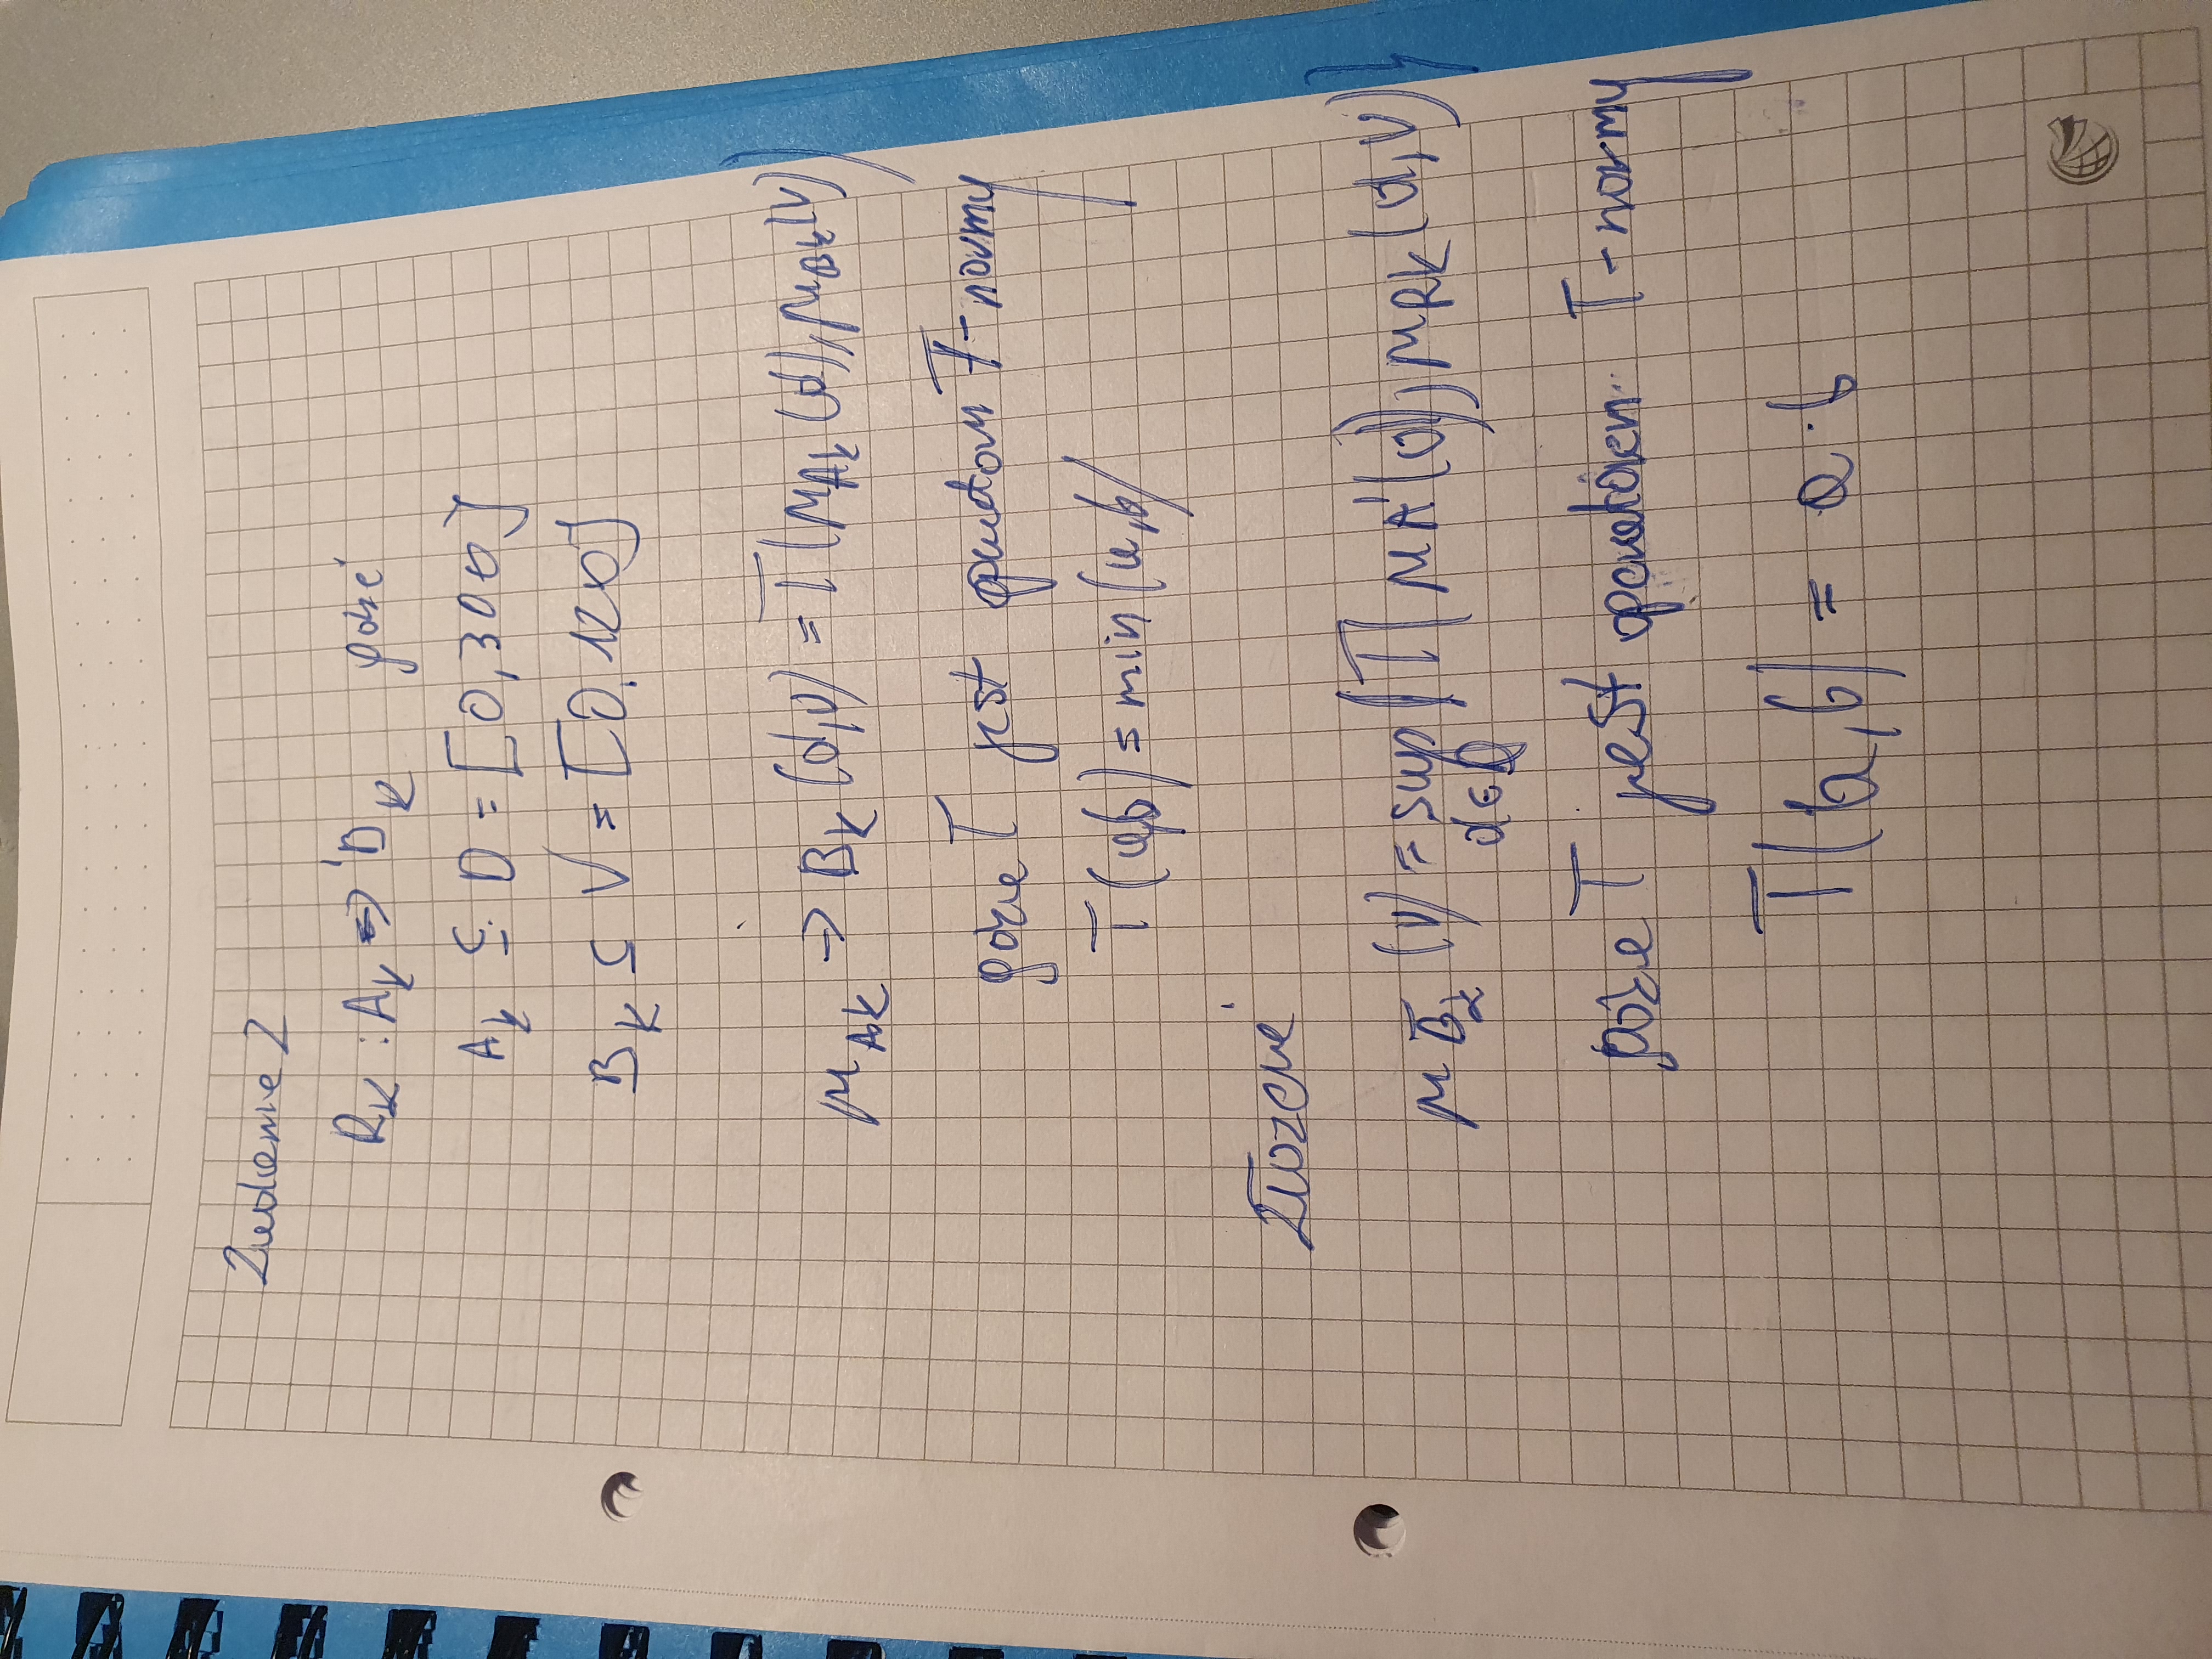 Zadanie 2
R_K : A_K => B_K gdzie
A_k ⊆ D = [0,300]
B_K ⊆ V = [0,120]
μ_AK → B_K (d,v) = T(μ_Ak (d), μ_Bk (v))
gdzie T jest operatorem T-normy
T(a,b) = min(a,b)
Złożenie
μ_B̄_k (v) = sup (T(μA'(d)), μ_RK (d,v))
d∈D
gdzie T jest operatorem T-normy
T(a,b) = a·b